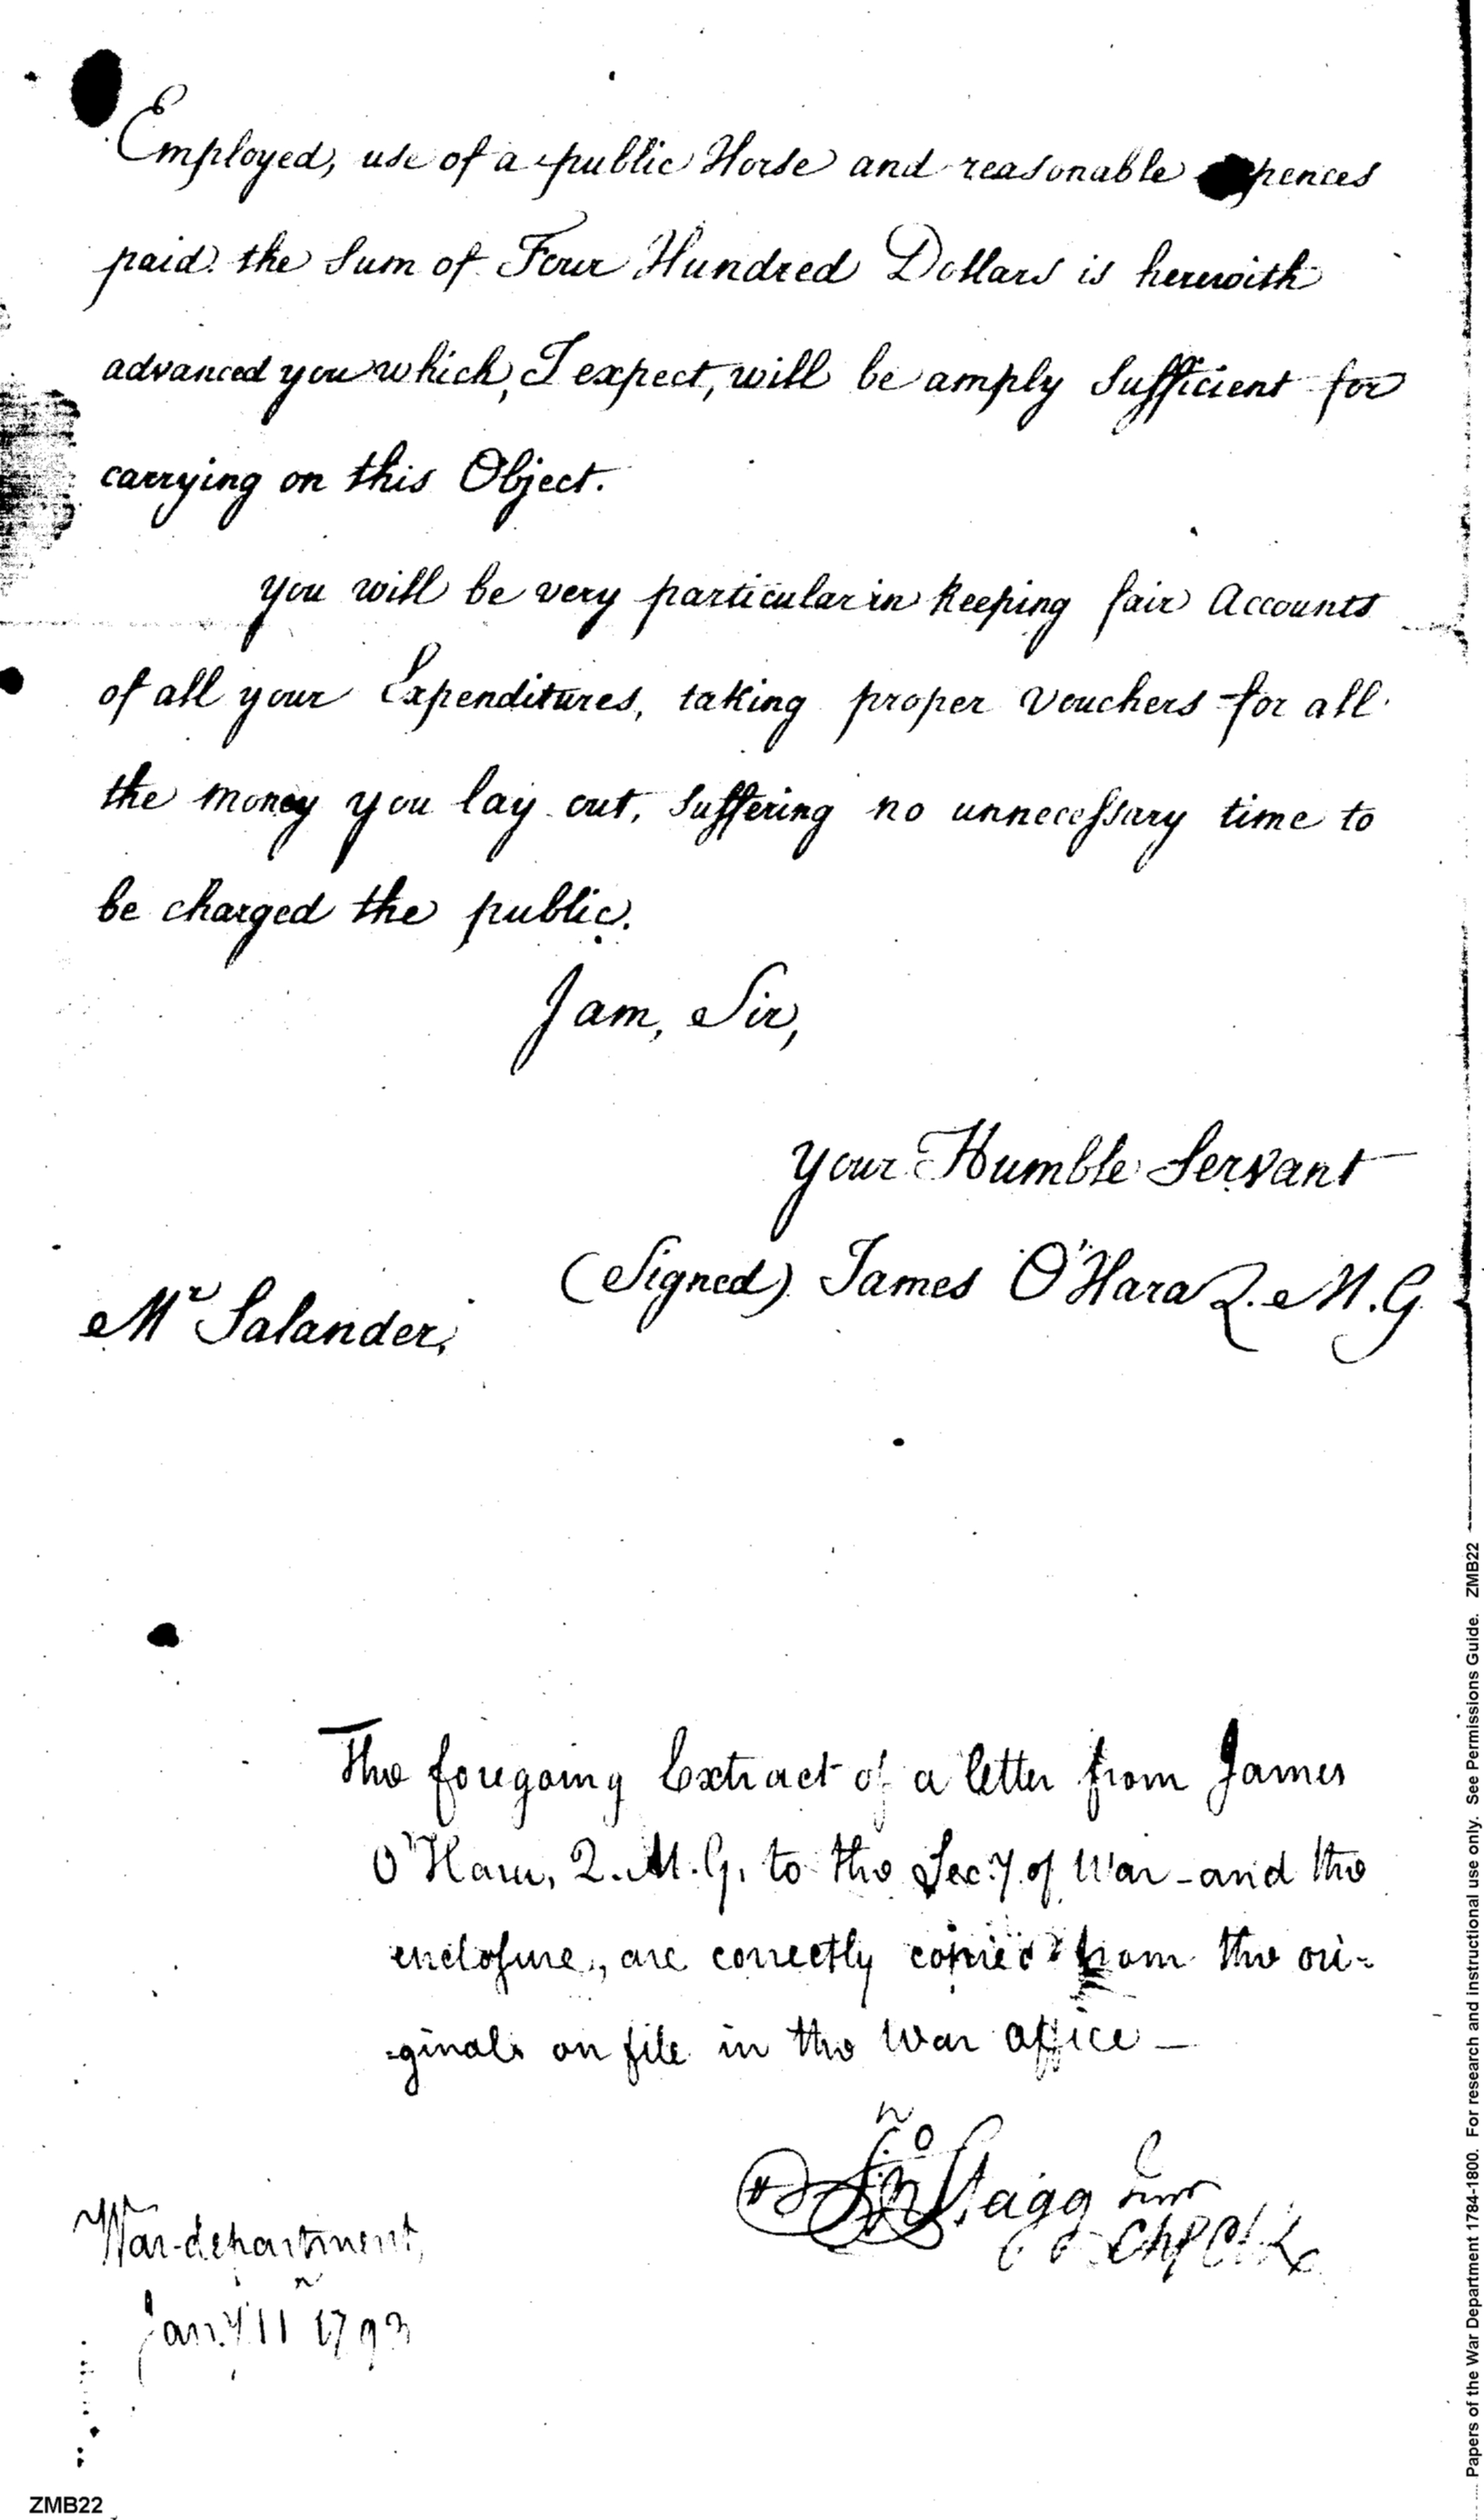 Employed, use of a public Horse and reasonable expences
paid. the Sum of Four Hundred Dollars is herewith
advanced you which, I expect, will be amply Sufficient for
carrying on this Object.
you will be very particular in keeping fair Accounts
of all your Expenditures, taking proper vouchers for all
the money you lay out, Suffering no unnecessary time to
be charged the public.
I am, Sir,
your Humble Servant
(Signed) James O'Hara Q. M. G
Mr Salander,
The foregoing Extract of a letter from James
O'Hara, Q. M. G. to the Sec.y of War - and the
enclosure, are correctly copied from the ori-
-ginals on file in the War office —
Jno Stagg Junr
Chf Clk
War-department,
Jan.y 11 1793
ZMB22
Papers of the War Department 1784-1800. For research and instructional use only. See Permissions Guide. ZMB22